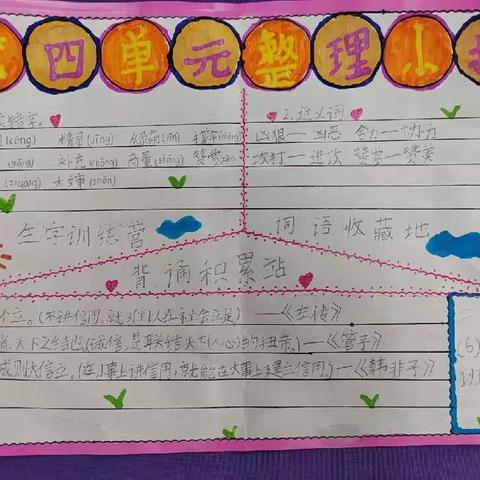 四单元整理小
(cóng) 精灵(jīng)
2.近义词
凶狠—凶恶 合力—协力
补充(chōng) 商量(shāng) 赞赏
攻打—进攻 赞赏—赞美
大婶(shěn)
生字训练营
词语收藏地
背诵积累站
不立。(不讲信用,就难以在社会立足)——《左传》
天下之结也(诚信,是联结天下(人心)的纽带。)——《管子》
成则大信立。(在小事上讲信用,就能在大事上建立信用。)——《韩非子》
二
(6)
班